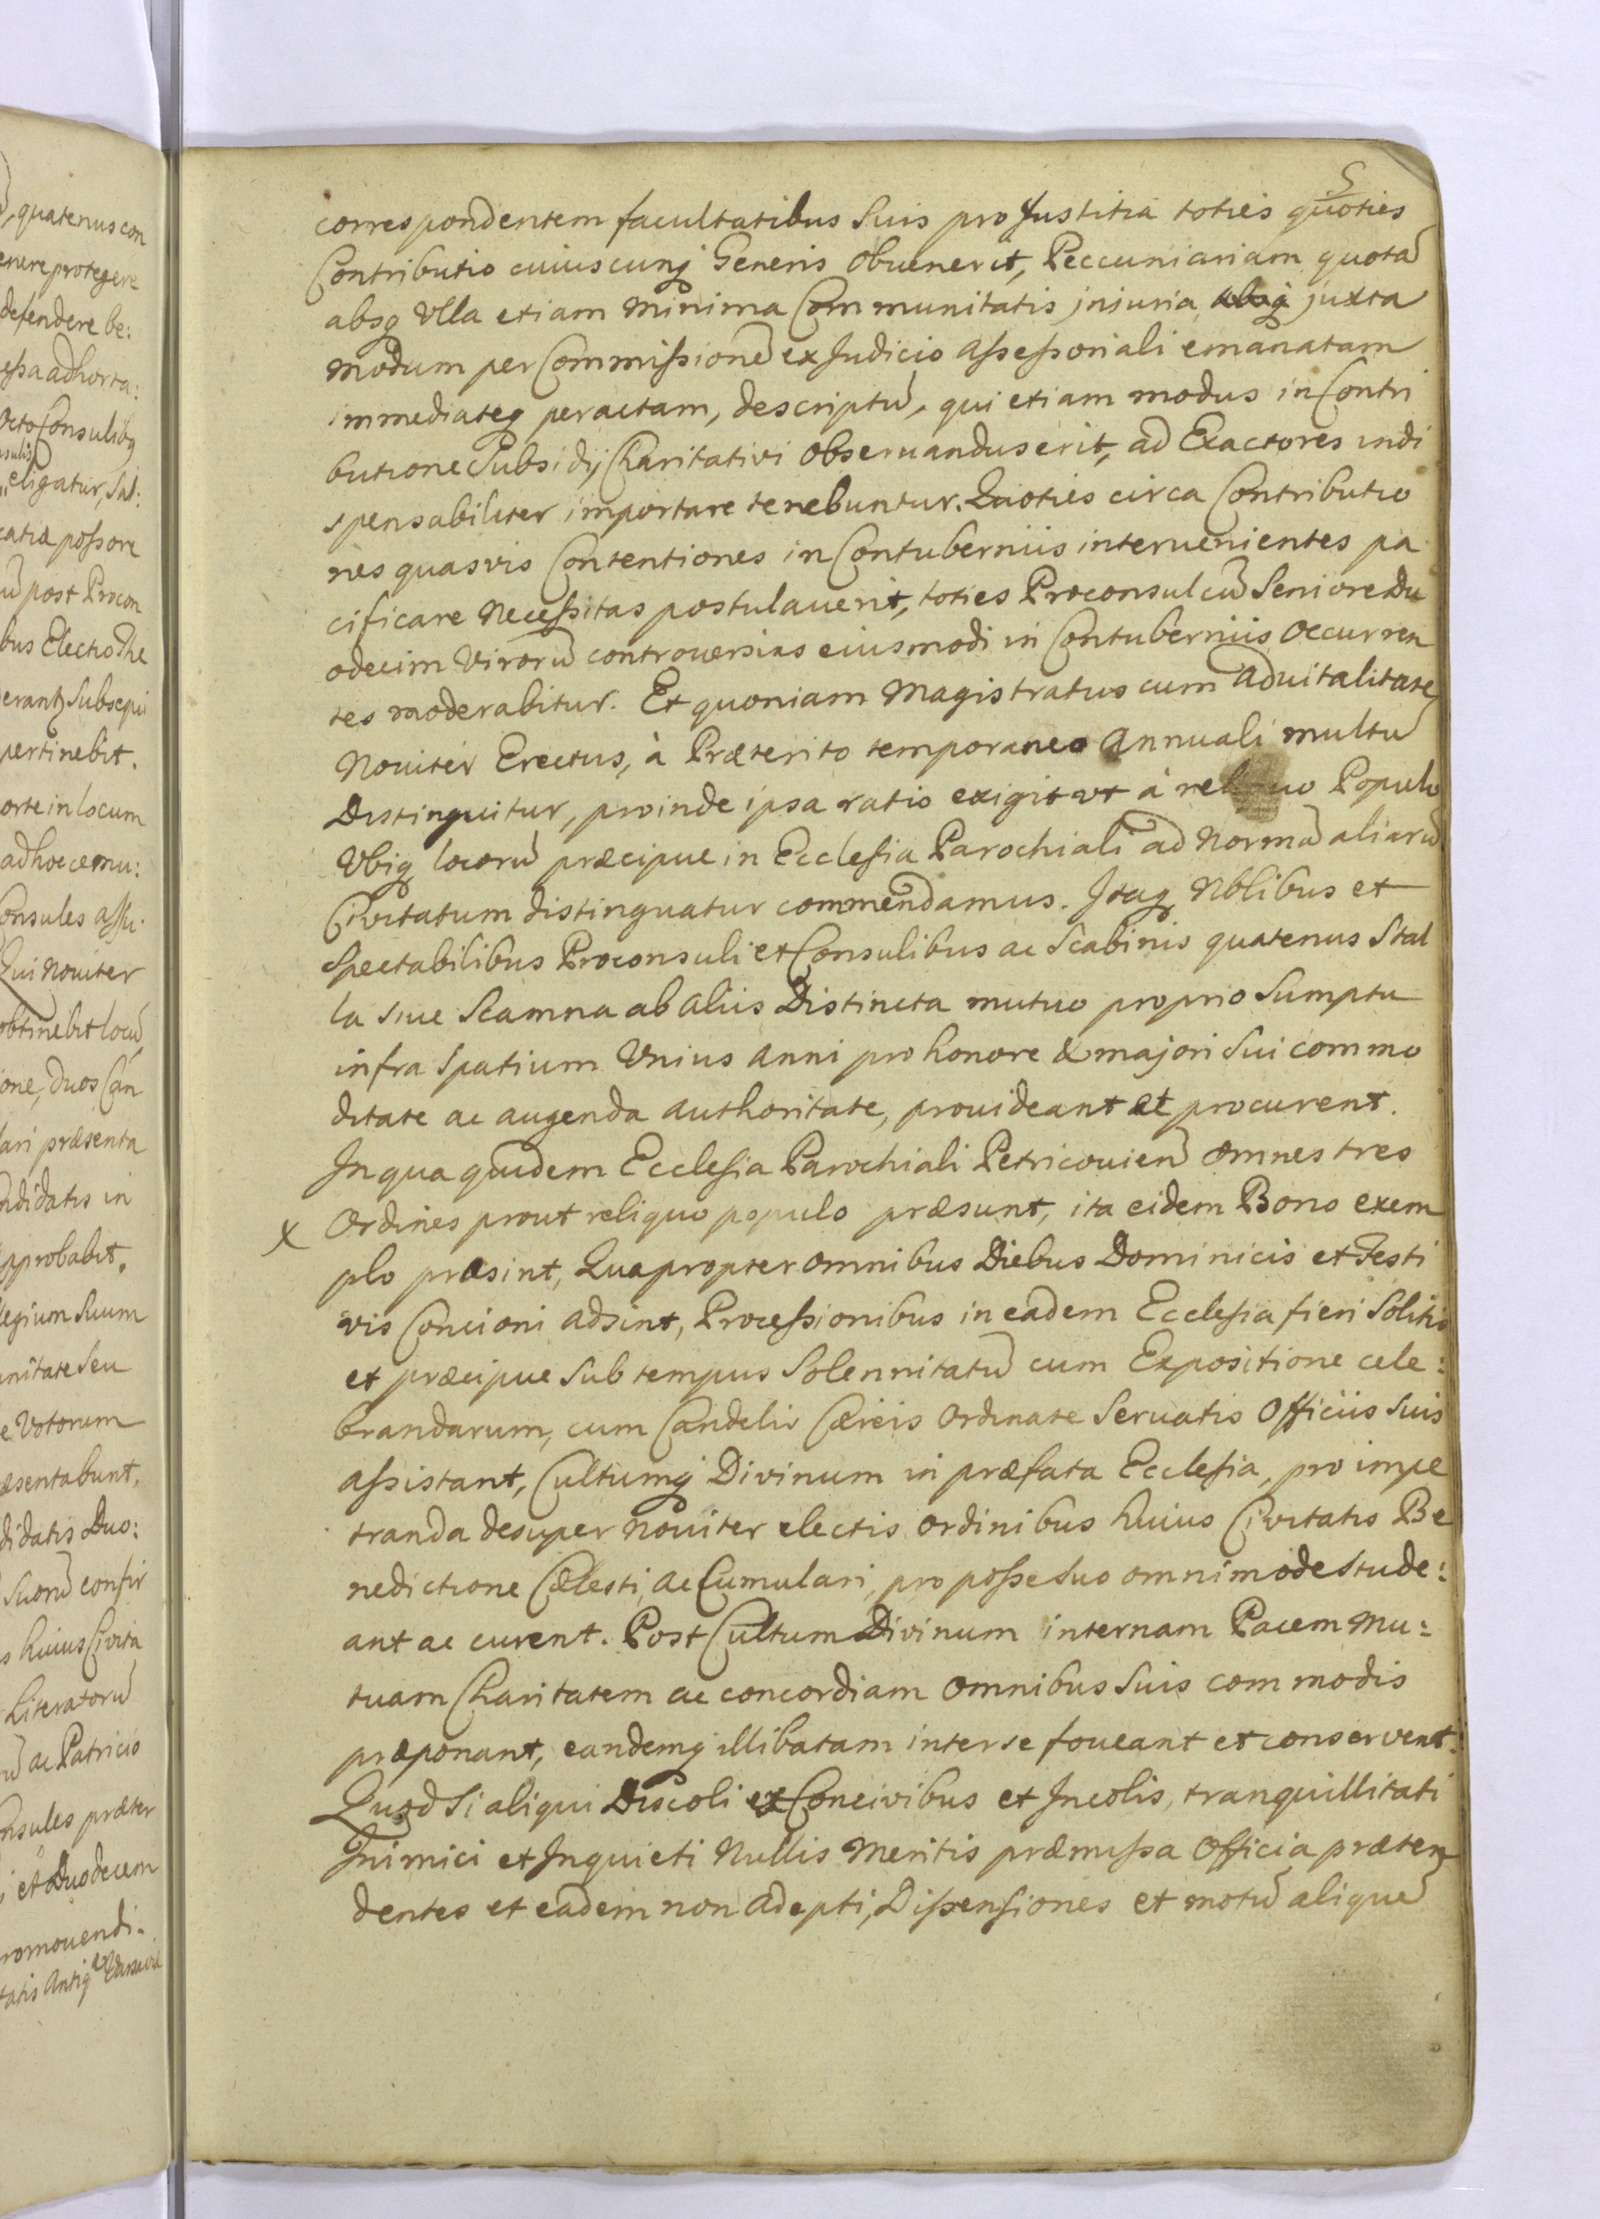 5
correspondentem facultatibus Suis pro Justitia toties quoties
Contributio cuiuscunq Generis obuenerit, Peccuniariam quotā
absq Vlla etiam minima Communitatis injuria absq juxta
modum per Commißionē ex Judicio Aßeßoriali emanatam
immediateq peractam, descriptū, qui etiam modus in Contri
butione Subsidij Charitativi obseruandus erit, ad Exactores indi
spensabiliter importare tenebuntur. Quoties circa Contributio
nes quasvis Contentiones in Contuberniis interuenientes pa
cificare Neceßitas postulauerit, toties Proconsul cū Seniore Du
odecim Virorū controversias eiusmodi in Contuberniis occurren
tes moderabitur. Et quoniam Magistratus cum aduitalitate
Nouiter Erectus, à Præterito temporaneo Annuali multū
Distinguitur, proinde ipsa ratio exigit vt à reliquo Populo
Vbiq locorū præcipue in Ecclesia Parochiali ad Normā aliarū
Civitatum distinguatur commendamus. Itaq Nblibus et
Spectabilibus Proconsuli et Consulibus ac Scabinis quatenus Stal
la siue Scamna ab aliis Distincta mutuo proprio Sumptu
infra Spatium Vnius Anni pro honore & majori Sui commo
ditate ac augenda authoritate, prouideant et procurent.
In qua quidem Ecclesia Parochiali Petricouien̄ omnes tres
X Ordines prout reliquo populo præsunt, ita eidem Bono exem
plo præsint, Quapropter omnibus Diebus Dominicis et Festi
vis Concioni adsint, Proceßionibus in eadem Ecclesia fieri Solitis
et præcipue Sub tempus Solennitatū cum Expositione cele:
brandarum, cum Candelis Cæreis ordinate Seruatis Officiis Suis
aßistant, Cultumq Divinum in præfata Ecclesia, pro impe
tranda desuper nouiter electis ordinibus huius Civitatis Be
nedictione Cælesti, ac Cumulari, pro poße Suo omnimode Stude:
ant ac curent. Post Cultum Divinum internam Pacem Mu:
tuam Charitatem ac concordiam omnibus Suis commodis
præponant, eandemq illibatam inter se foueant et conservent:
Quod Si aliqui Discoli ex Concivibus et Incolis, tranquillitati
Inimici et Inquieti Nullis Meritis præmißa Officia præten
dentes et eadem non adepti, Dißensiones et motū aliquē
quatenus con
enere protegere
defendere be:
eßa adhorta:
Octo Consulibq
eligatur, Sal:
catiæ poßore
post Procon
bus Electio The
pertinebit.
orte in locum
ad hoc emu:
Consules aßu:
Qui Nouiter
obtinebit locū
ione, duos Can
lari præsenta
ndidatis in
approbabit.
legium Suum
unitate Seu
e Votorum
æsentabunt,
didatis Duo:
Suorū confir
s huius Civita
Literatorū
ū ac Patricio
nsules præter
et Duodecem
romouendi.